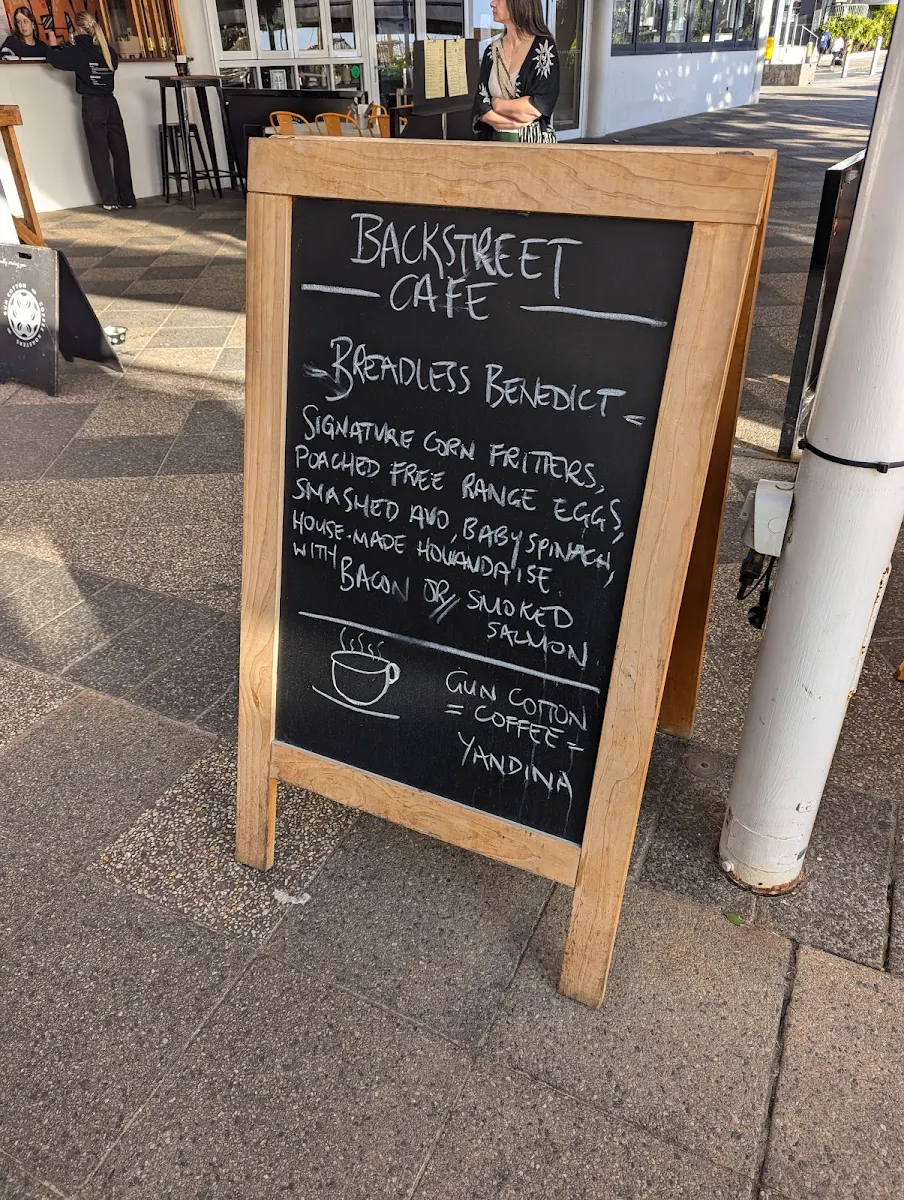 BACKSTREET
CAFE
BREADLESS BENEDICT
SIGNATURE CORN FRITTERS,
POACHED FREE RANGE EGGS,
SMASHED AVO, BABY SPINACH,
HOUSE-MADE HOLLANDAISE
WITH BACON OR SMOKED
SALMON
GUN COTTON
= COFFEE =
YANDINA
GUN COTTON
COFFEE ROASTERS